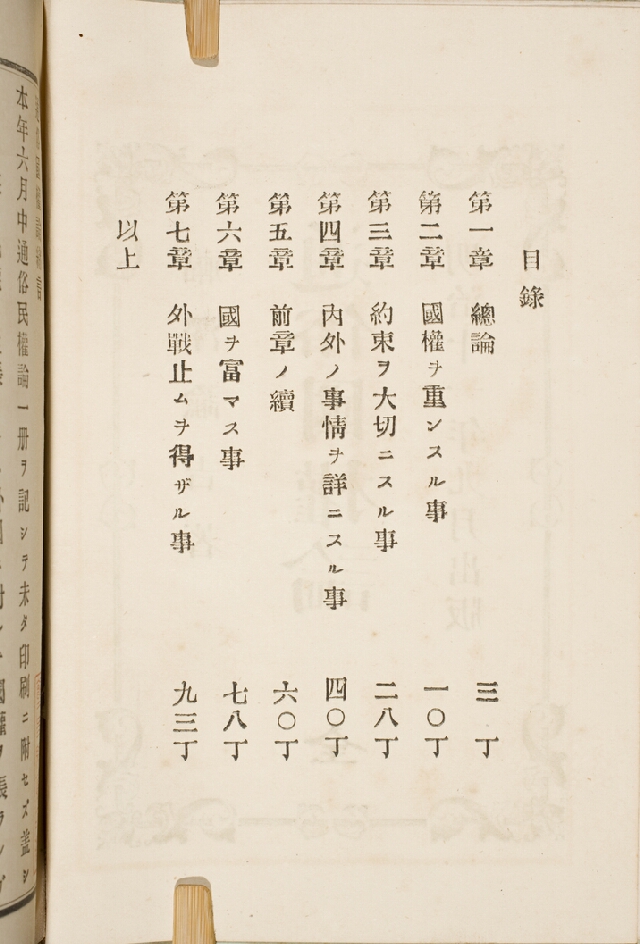 目錄
第一章 總論 三丁
第二章 國權ヲ重ンスル事 一〇丁
第三章 約束ヲ大切ニスル事 二八丁
第四章 內外ノ事情ヲ詳ニスル事 四〇丁
第五章 前章ノ續 六〇丁
第六章 國ヲ富マス事 七八丁
第七章 外戰止ムヲ得ザル事 九三丁
以上
本年六月中通俗民權論一册ヲ記シテ未タ印刷ニ附セズ蓋シ